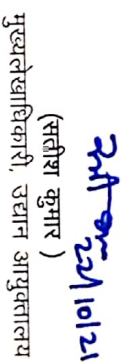 22/10/21
(सतीश कुमार )
मुख्यलेखाधिकारी, उद्यान आयुक्तालय